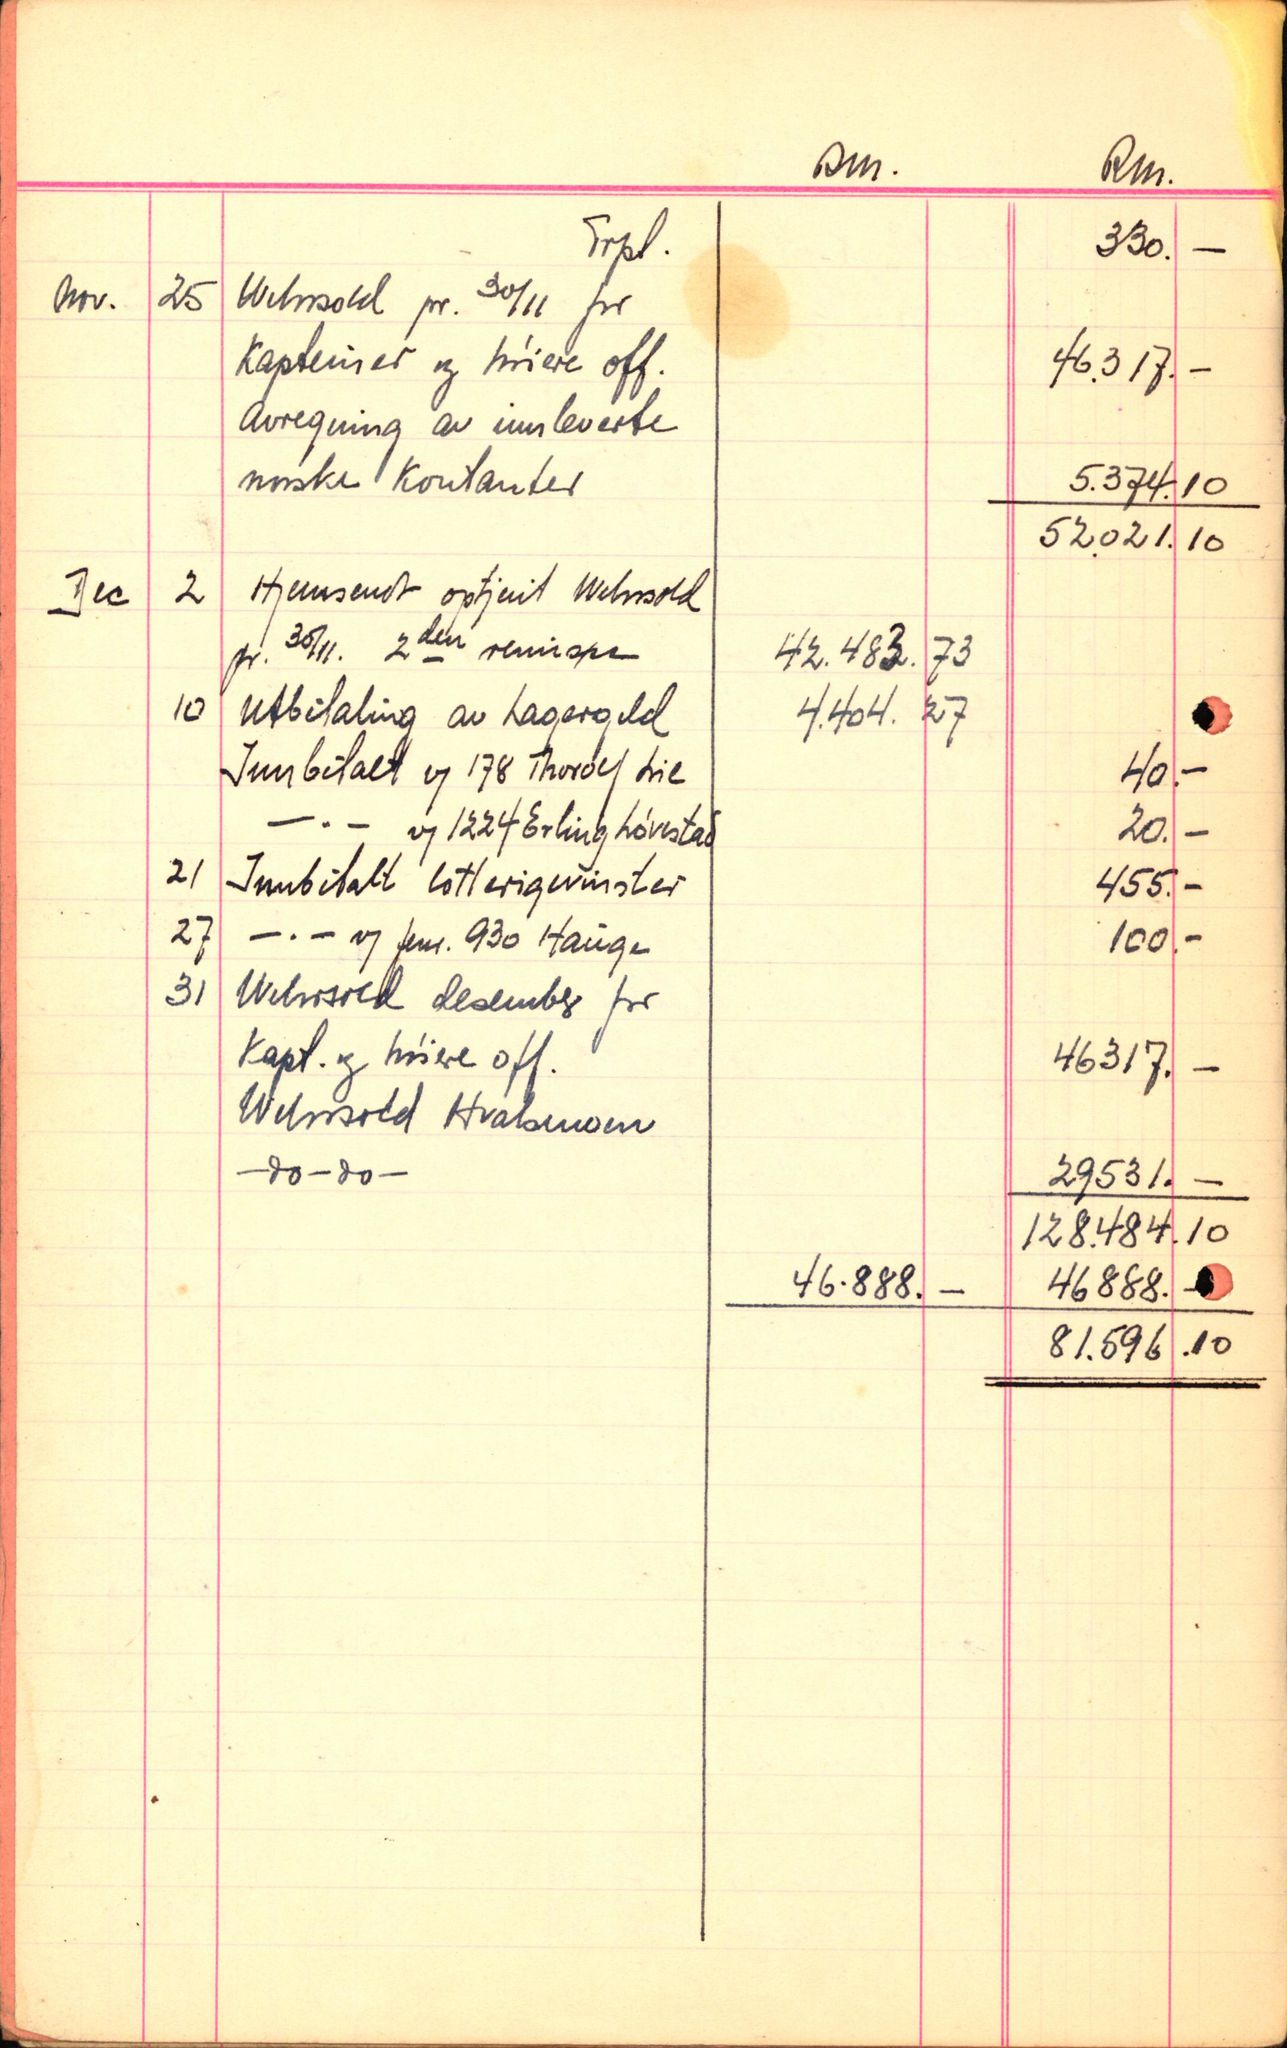 Rm. Rm.
Trpt. 330. —
Nov. 25 Wehrsold pr. 30/11 for
Kapteiner og höiere off. 46.317. —
Avregning av innleverte
norske Kontanter 5.374.10
52.021.10
Dec 2 Hjemsendt optjent Wehrsold
pr. 30/11. 2den remisse 42.483.73
10 Utbetaling av Lagergeld 4.404.27
Innbetalt v/ 178 Thorolf Lie 40.—
—.— v/ 1224 Erling Lövestad 20.—
21 Innbetalt lotterigevinster 455.—
27 —.— v/ fenr. 930 Hauge 100.—
31 Wehrsold desember for
Kapt. og höiere off. 46317. —
Wehrsold
—do—do— 29531. —
128.484.10
46.888. — 46888. —
81.596.10